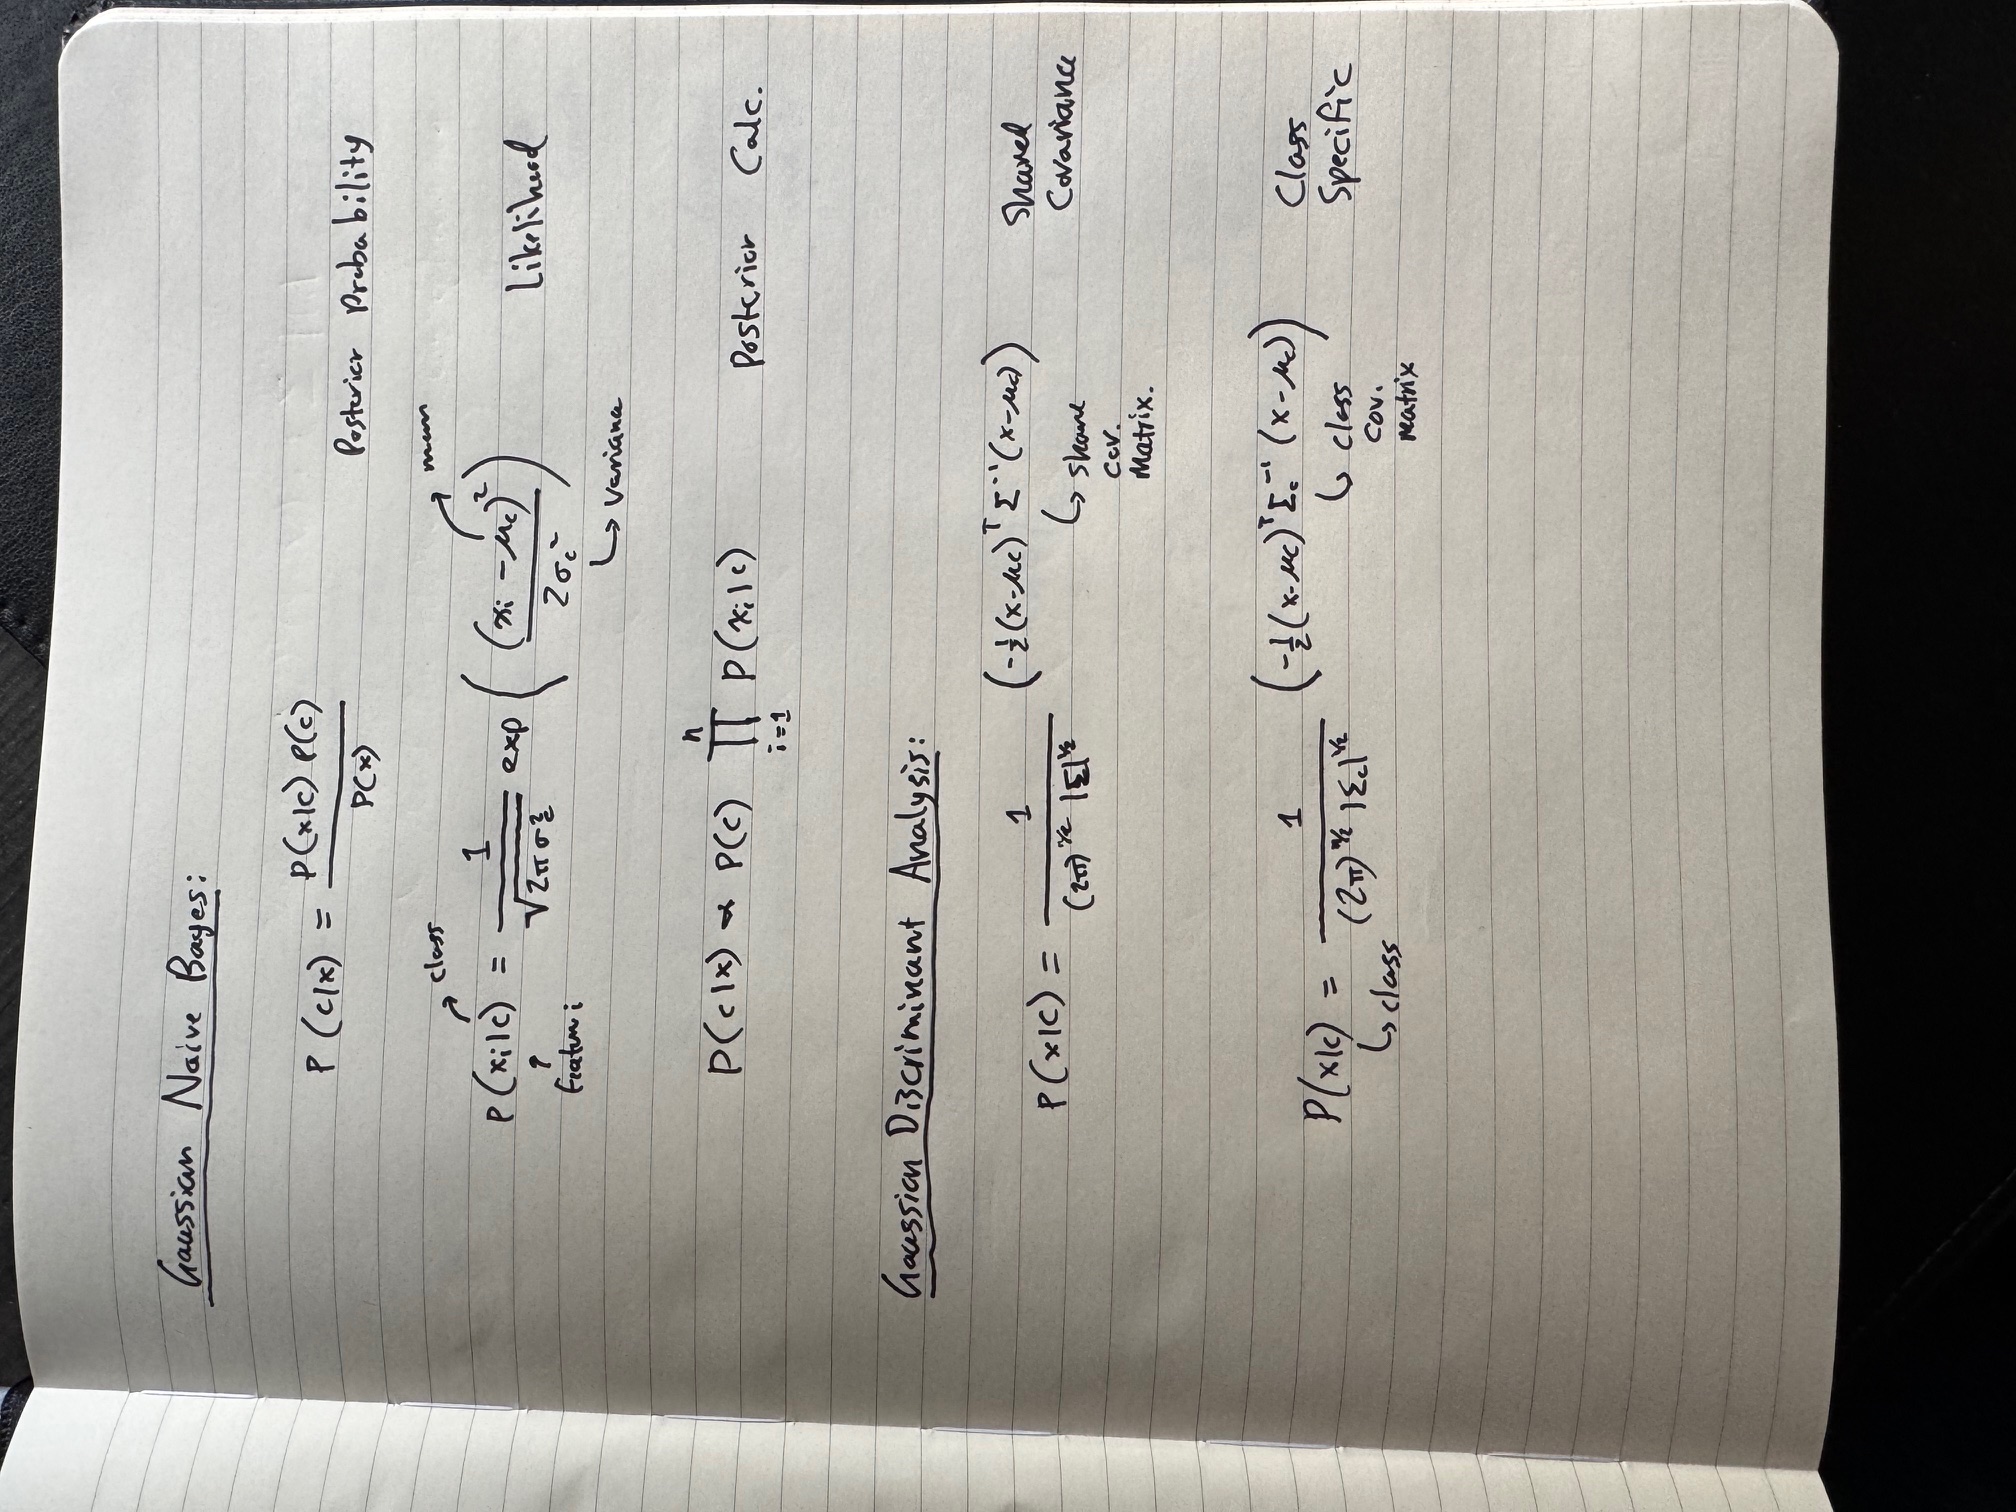 Gaussian Naive Bayes:
P(c|x) = P(x|c) P(c) / P(x)
Posterior Probability
class
mean
P(xᵢ|c) = 1 / √(2πσ_c²) exp ( (xᵢ - μ_c)² / 2σ_c² )
Likelihood
feature i
variance
P(c|x) ∝ P(c) ∏ᵢ₌₁ⁿ P(xᵢ|c)
Posterior Calc.
Gaussian Discriminant Analysis:
P(x|c) = 1 / (2π)^(n/2) |Σ|^(1/2) (-½(x-μc)ᵀ Σ⁻¹ (x-μc))
Shared
Covariance
share
cov.
Matrix.
P(x|c) = 1 / (2π)^(n/2) |Σc|^(1/2) (-½(x-μc)ᵀ Σc⁻¹ (x-μc))
Class
Specific
class
class
cov.
matrix